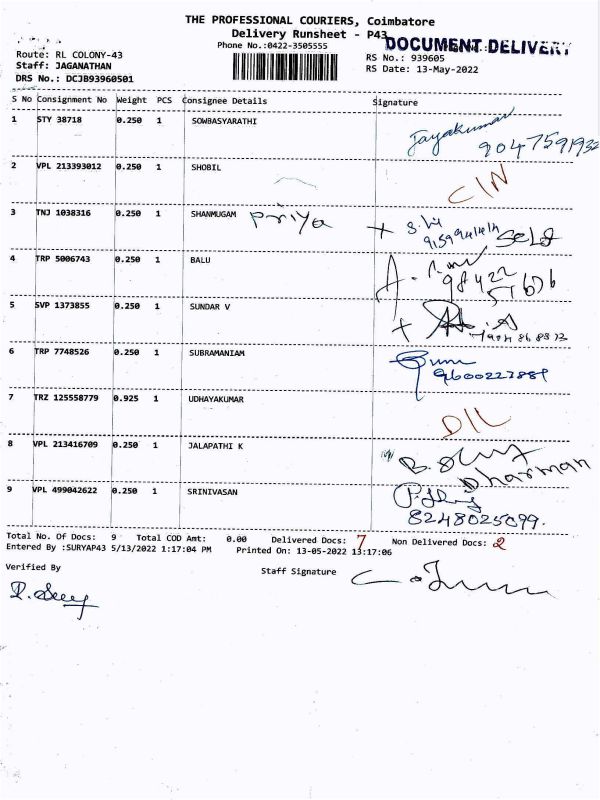 THE PROFESSIONAL COURIERS, Coimbatore
Delivery Runsheet - P43
DOCUMENT DELIVERY
Phone No.:0422-3505555
Route: RL COLONY-43
Staff: JAGANATHAN
DRS No.: DCJB93960501
RS No.: 939605
RS Date: 13-May-2022
S No Consignment No Weight PCS Consignee Details Signature
1 STY 38718 0.250 1 SOWBASYARATHI Jayakumar
9047591932
2 VPL 213393012 0.250 1 SHOBIL C/N
3 TNJ 1038316 0.250 1 SHANMUGAM Priya Self
4 TRP 5006743 0.250 1 BALU
98422
57676
5 SVP 1373855 0.250 1 SUNDAR V
6 TRP 7748526 0.250 1 SUBRAMANIAM
7 TRZ 125558779 0.925 1 UDHAYAKUMAR D/L
8 VPL 213416709 0.250 1 JALAPATHI K
Dharman
9 VPL 499042622 0.250 1 SRINIVASAN
8248025099.
Total No. Of Docs: 9 Total COD Amt: 0.00 Delivered Docs: 7 Non Delivered Docs: 2
Entered By :SURYAP43 5/13/2022 1:17:04 PM Printed On: 13-05-2022 13:17:06
Verified By Staff Signature